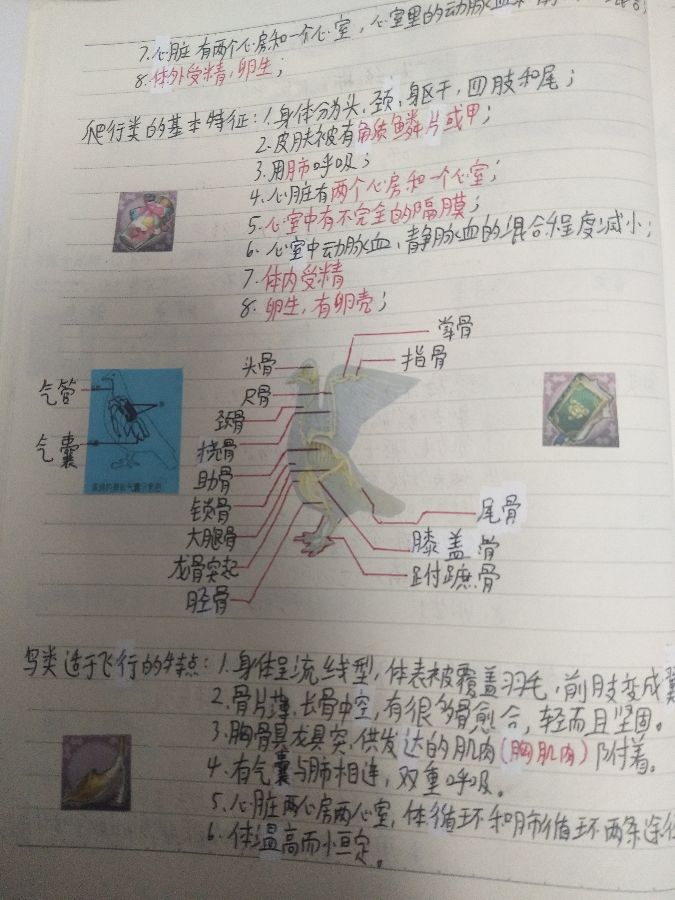 7.心脏有两个心房和一个心室，心室里的动脉血
8.体外受精，卵生；
爬行类的基本特征：1.身体分为头、颈、躯干、四肢和尾；
2.皮肤被有角质鳞片或甲；
3.用肺呼吸；
4.心脏有两个心房和一个心室；
5.心室中有不完全的隔膜；
6.心室中动脉血、静脉血的混合程度减小；
7.体内受精
8.卵生，有卵壳；
掌骨
头骨
指骨
气管
尺骨
颈骨
气囊
挠骨
肋骨
锁骨
尾骨
大腿骨
膝盖骨
龙骨突起
跗蹠骨
胫骨
鸟类适于飞行的特点：1.身体呈流线型，体表被覆盖羽毛，前肢变成翼
2.骨片薄，长骨中空，有很多骨愈合，轻而且坚固。
3.胸骨具龙具突，供发达的肌肉（胸肌肉）附着。
4.有气囊与肺相连，双重呼吸。
5.心脏两心房两心室，体循环和肺循环两条途径
6.体温高而恒定。